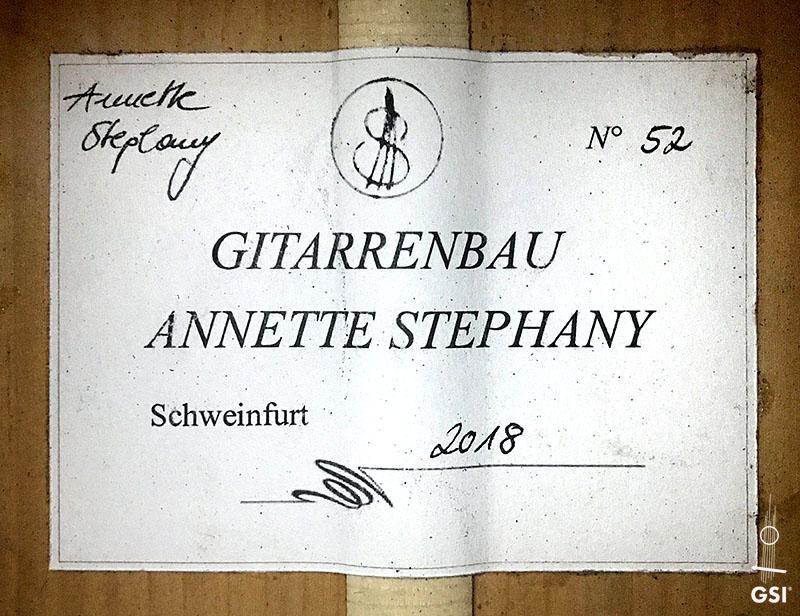 Annette
Stephany
N° 52
GITARRENBAU
ANNETTE STEPHANY
Schweinfurt
2018
GSI®